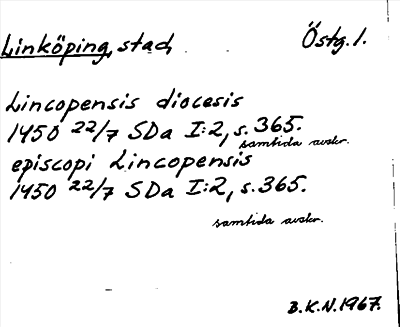 Linköping, stad, Östg. l.
Lincopensis diocesis
1450 22/7 SDa I:2, s. 365.
samtida avskr.
episcopi Lincopensis
1450 22/7 SDa I:2, s. 365.
samtida avskr.
B.K.N. 1967.